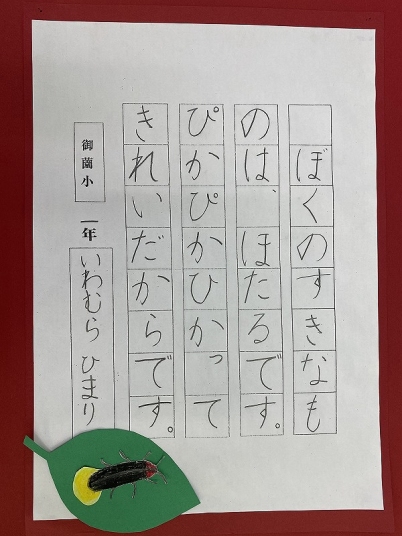 ぼくのすきなも
のは、ほたるです。
ぴかぴかひかって
きれいだからです。
御薗小 一年 いわむら ひまり